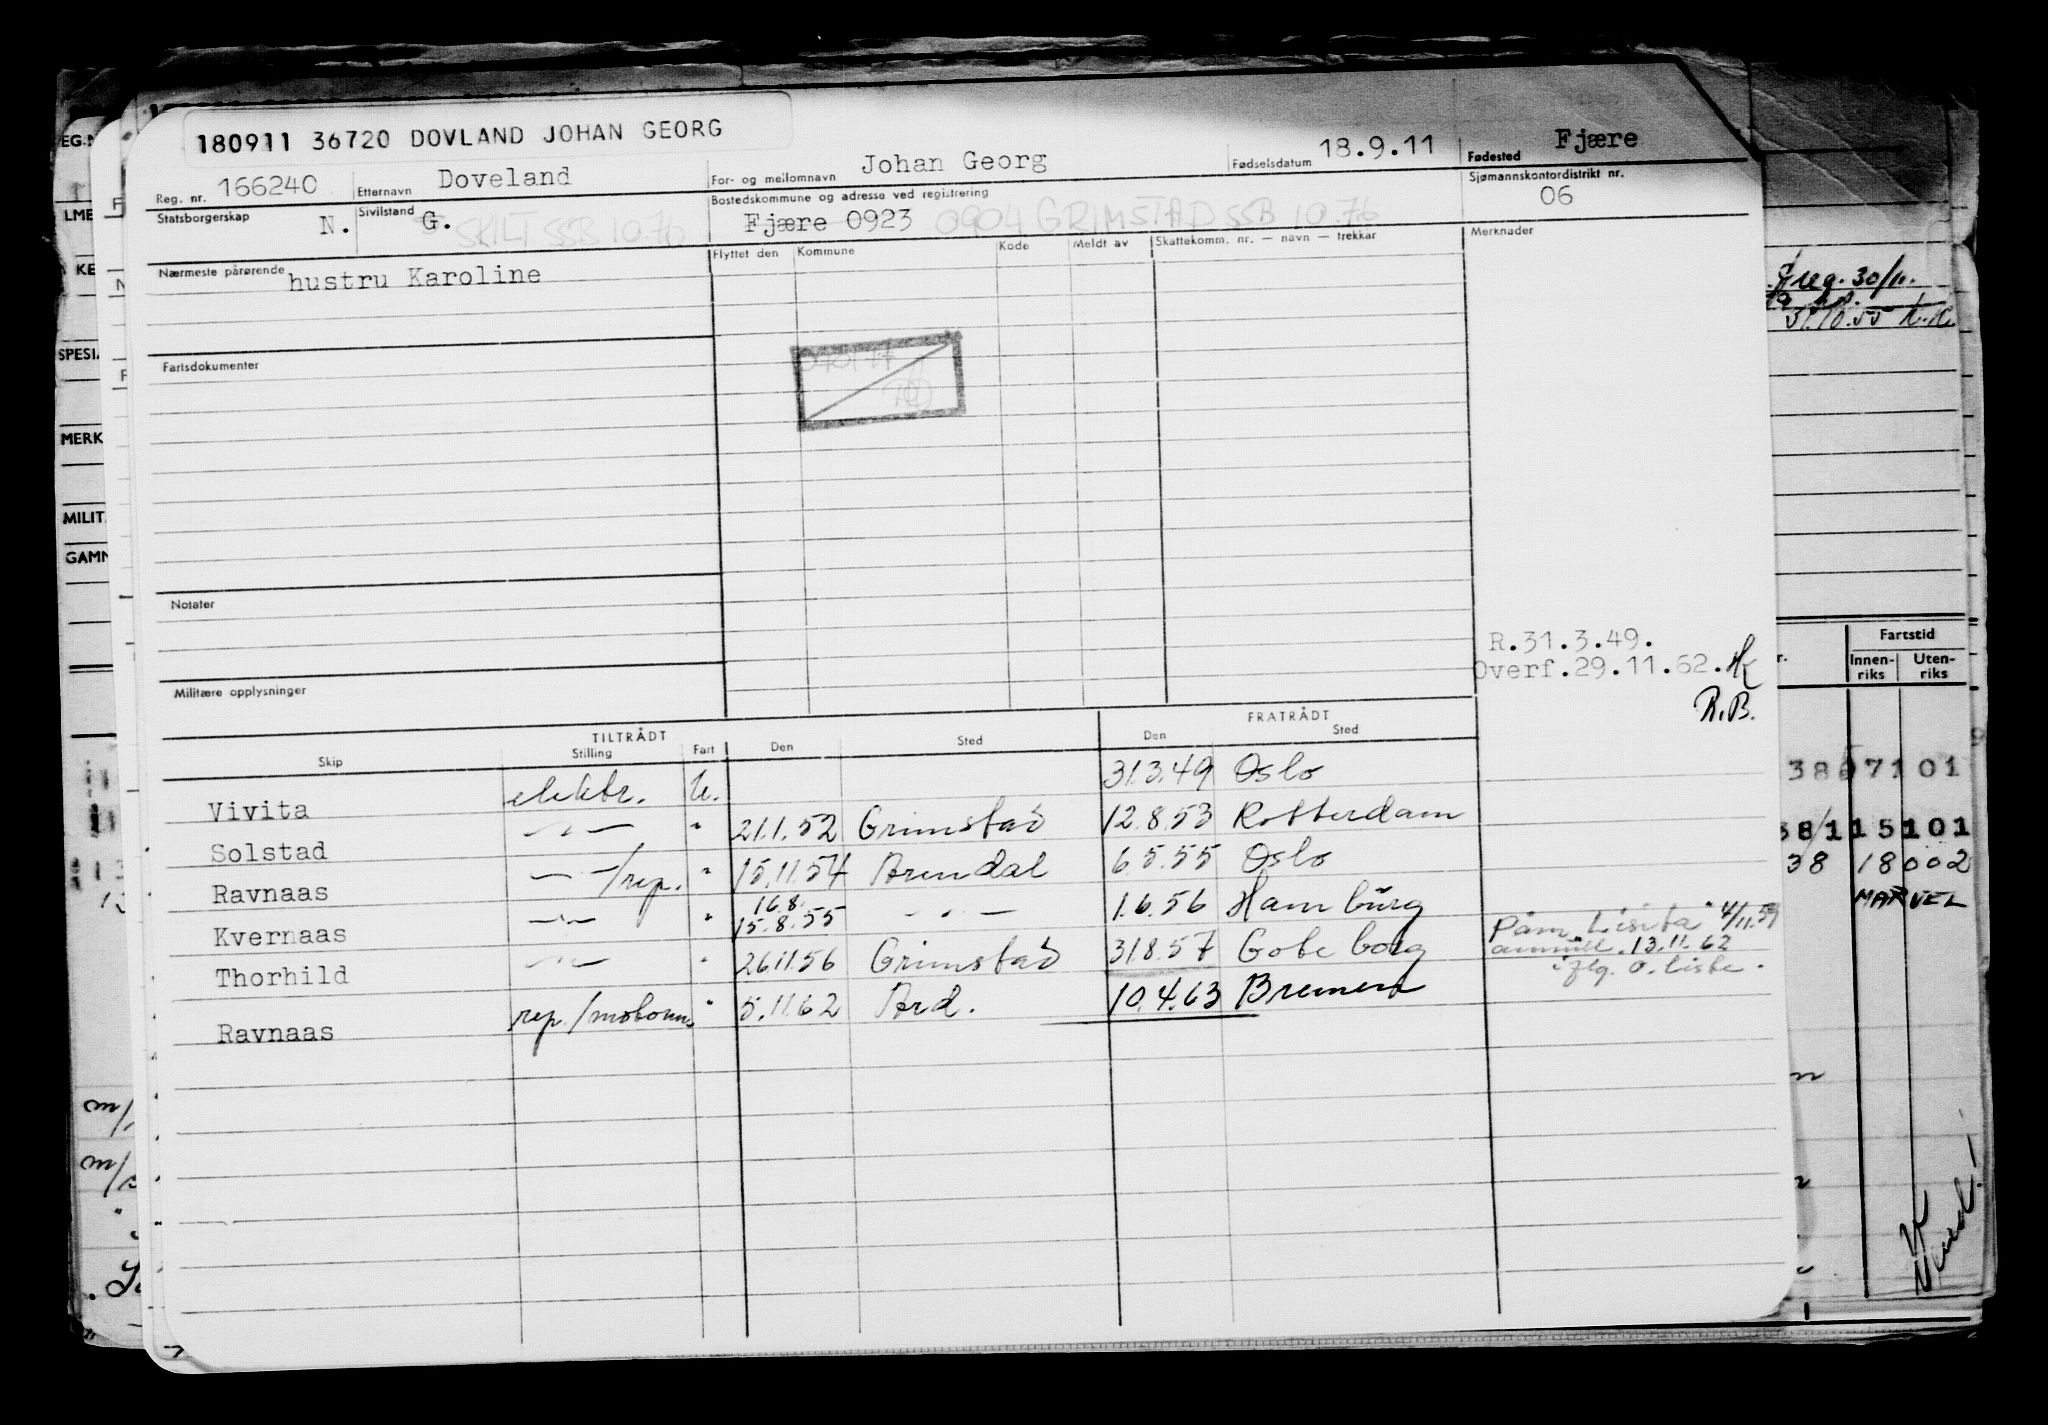 180911 36720 DOVLAND JOHAN GEORG
Reg. nr. 166240 Etternavn Doveland For- og mellomnavn Johan Georg Fødselsdatum 18.9.11 Fødested Fjære
Statsborgerskap N. Sivilstand G. SKILT SSB 10.76 Bostedskommune og adresse ved registrering Fjære 0923 0904 GRIMSTAD SSB 10.76 Sjømannskontordistrikt nr. 06
Nærmeste pårørende hustru Karoline
Flyttet den Kommune Kode Meldt av Skattekomm. nr. — navn — trekkår Merknader
Fartsdokumenter
Notater
Militære opplysninger
R.31.3.49.
Overf.29.11.62.
R.B.
TILTRÅDT FRATRÅDT
Skip Stilling Fart Den Sted Den Sted
Vivita elektr. U. 31.3.49 Oslo
Solstad —"— " 21.1.52 Grimstad 12.8.53 Rotterdam
Ravnaas —"—/rep. " 15.11.54 Arendal 6.5.55 Oslo
16.8.
Kvernaas —"— " 15.8.55 —"— 1.6.56 Hamburg
Thorhild —"— " 26.11.56 Grimstad 31.8.57 Gøteborg
Påm. "Lisita" 4/11.59
annull. 13.11.62
iflg. o. liste.
Ravnaas rep./motorm. " 5.11.62 Ard. 10.4.63 Bremen
EG.N
LME
KE
SPESI
MERK
MILIT
GAMM
reg. 30/11.
31/10.55
Fartstid
Innen-
riks
Uten-
riks
38 07101
38/1 15101
38 18002
MARVEL
m/
m/s